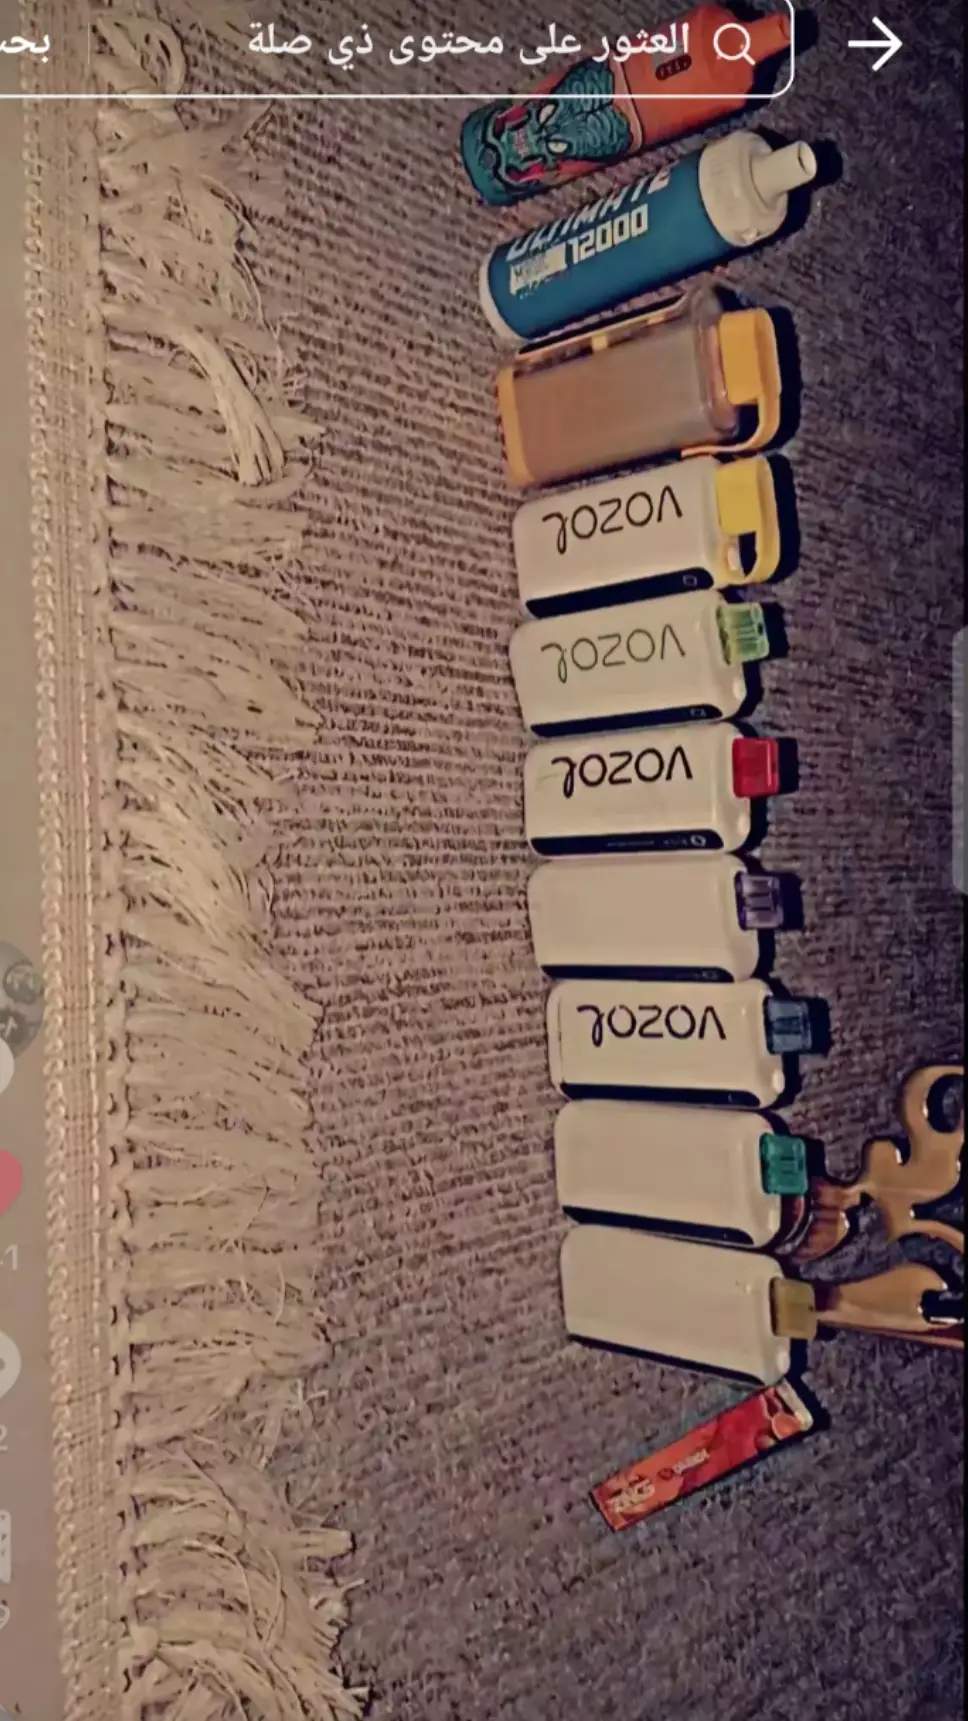 العثور على محتوى ذي صلة
بحث
ULTIMATE
12000
VOZOL
VOZOL
VOZOL
VOZOL